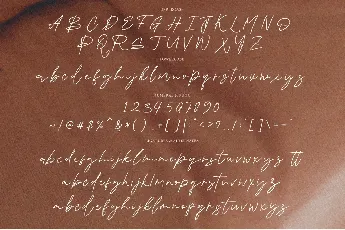 UPPERCASE
A B C D E F G H I J K L M N O
P Q R S T U V W X Y Z
LOWERCASE
a b c d e f g h i j k l m n o p q r s t u v w x y z
1 2 3 4 5 6 7 8 9 0
a b c d e f g h i j k l m n o p q r s t u v w x y z tt
a b c d e f g h i j k l m n o p q r s t u v w x y z
a b c d e f g h i j k l m n o p q r s t u v w x y z